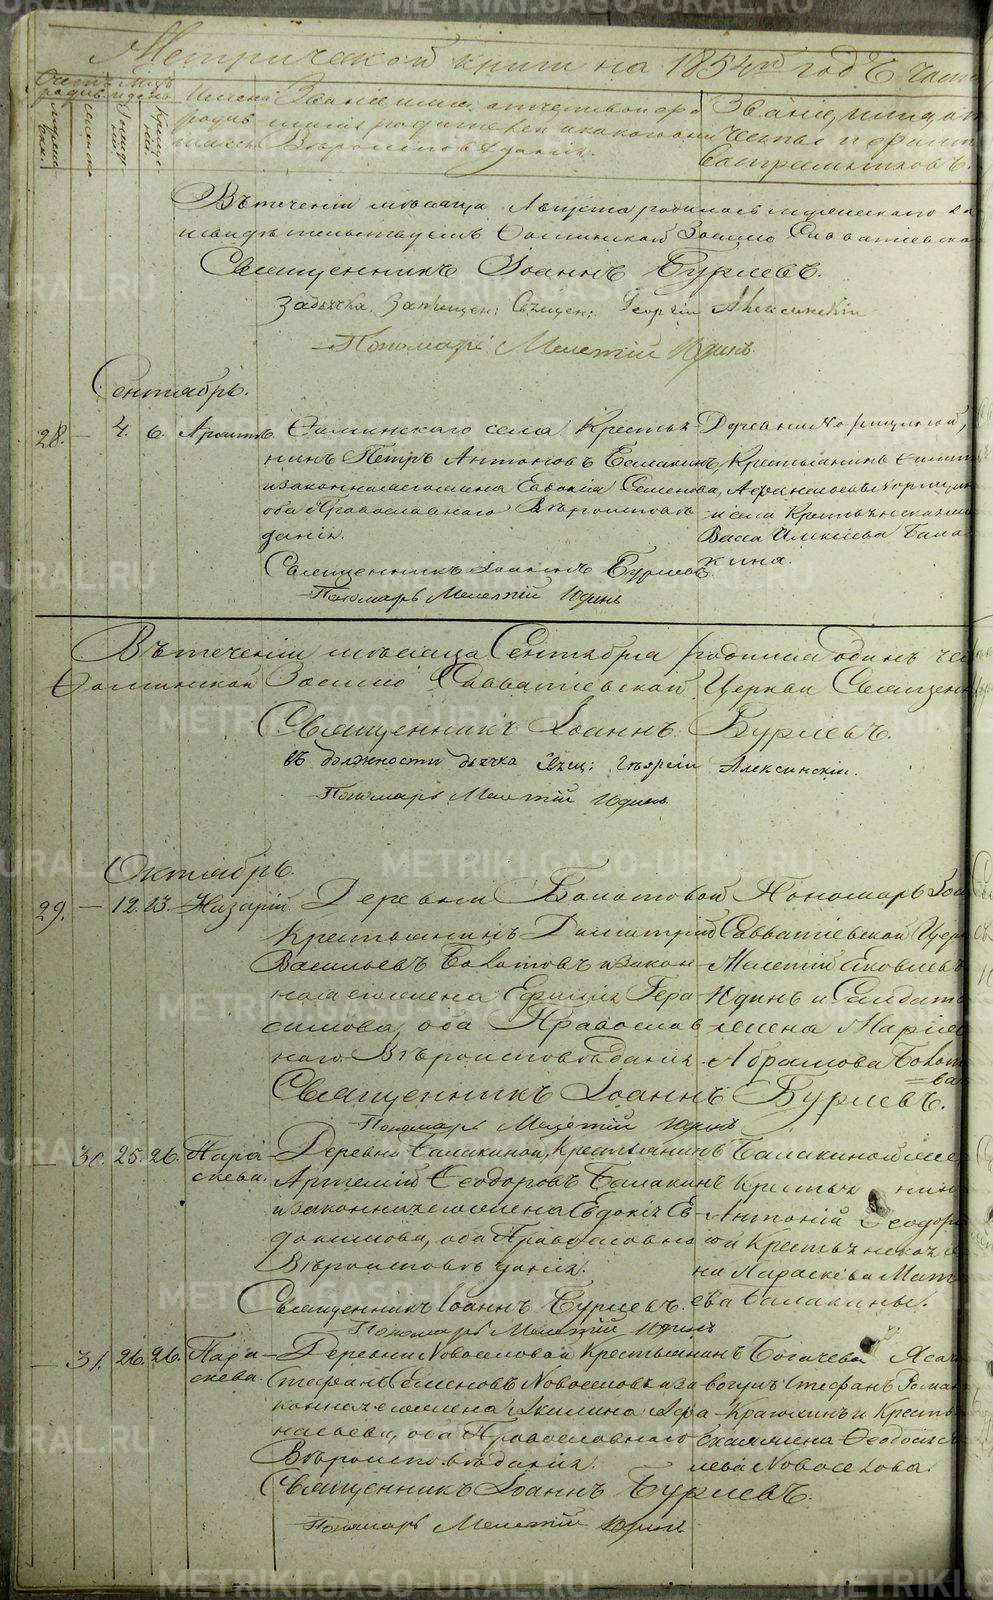 Метрической книги на 1854й годъ часть
Счетъ родив.
Мѣсяцъ и день
Имена родив
шихся
Званіе, имя, отчество и фа
милія родителей и какого они
Вѣроисповѣданія.
Званіе, имя, от
чество и фами
воспріемниковъ.
мужеска
женска
рожде
ній
креще
ній
Въ теченіи мѣсяца Августа родилось мужескаго
Зосимо Савватіевской
Священникъ Іоаннъ Бурлевъ.
За дьячка Запрещен: Священ: Георгій Алексинскій
Пономарь Мелетій Юдинъ
Сентябрь.
28. — 4. 6.
Ѳоминскаго села Крестья
нинъ Петръ Антоновъ Балакинъ,
и законная его жена Евдокія Семенова,
оба Православнаго Вѣроисповѣ
данія.
Деревни
Крестьянинъ
и села Крестьянская жена
Васса Алексіева Бала
кина.
Священникъ Іоаннъ Бурлевъ.
Пономарь Мелетій Юдинъ
Въ теченіи мѣсяца Сентября родился одинъ
Ѳоминской Зосимо Савватіевской Церкви Священ
Священникъ Іоаннъ Бурлевъ.
въ должности дьячка Свящ: Георгій Алексинскій.
Пономарь Мелетій Юдинъ
Октябрь.
29. — 12. 13. Назарій.
Деревни Болотовой
Крестьянинъ Димитрій
Васильевъ Болотовъ и закон
ная его жена Ефимія Гера
симова, оба Православ
наго Вѣроисповѣданія.
Пономарь Зоси
Савватіевской Церк
Мелетій Яковлевъ
Юдинъ и Солдатс
жена Марія
Абрамова Болот
=ва
Священникъ Іоаннъ Бурлевъ.
Пономарь Мелетій Юдинъ
— 30. 25. 26. Пара
скева.
Деревни Балакиной, Крестьянинъ
Артемій Ѳеодоровъ Балакинъ
и законная его жена Евдокія Ев
докимова, оба Православна
Вѣроисповѣданія.
Балакиной
Крестья нинъ
Антоній Ѳеодоро
и Крестьянская
на Параскева Матѳ
ева Балакины.
Священникъ Іоаннъ Бурлевъ.
Пономарь Мелетій Юдинъ
— 31. 26. 26. Пара
скева.
Деревни Новоселовой Крестьянинъ
Стефанъ Семеновъ Новоселовъ и за
конная его жена Акилина Афа
насьева, оба Православнаго
Вѣроисповѣданія.
Богачева Ясач
вогулъ Стефанъ Роман
и Кресть
ская жена Ѳеодосія
лева Новоселова.
Священникъ Іоаннъ Бурлевъ.
Пономарь Мелетій Юдинъ
METRIKI.GASO-URAL.RU